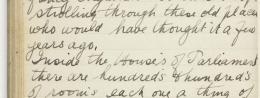 strolling through these old places
who would have thought it a few
years ago,
Inside the Houses of Parliament
there are hundreds & hundreds
of rooms each one a thing of